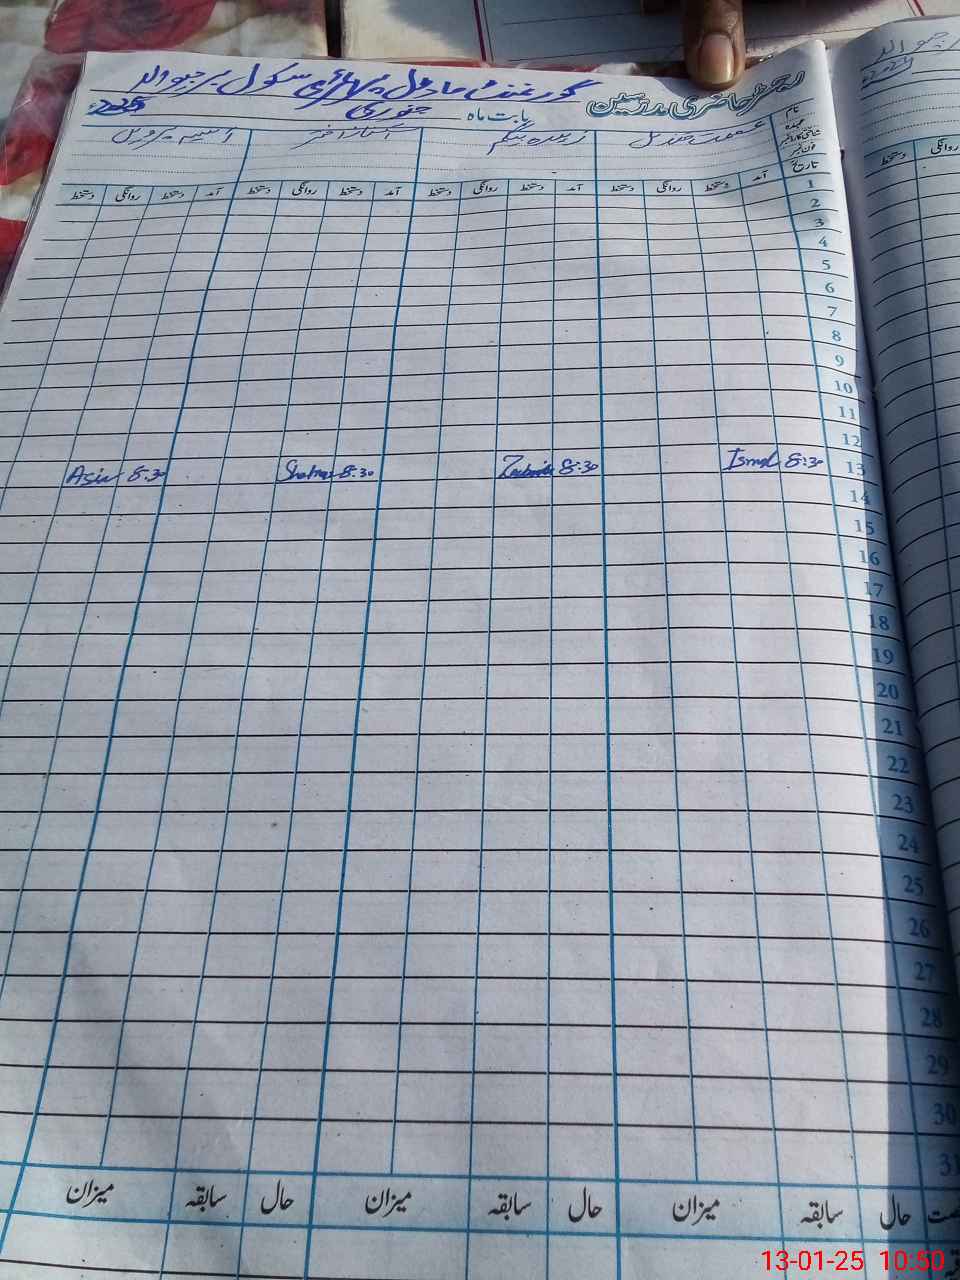 رجسٹر حاضری مدرسین گورنمنٹ ماڈل پرائمری سکول
بابت ماہ جنوری 2025ء
نام
عہدہ
شناختی کارڈ نمبر
فون نمبر
عصمت زبیدہ بیگم شہناز اختر آسیہ پروین
تاریخ آمد دستخط روانگی دستخط آمد دستخط روانگی دستخط آمد دستخط روانگی دستخط آمد دستخط روانگی دستخط
روانگی دستخط
1
2
3
4
5
6
7
8
9
10
11
12
13 8:30 8:30 8:30 Asia 8:30
14
15
16
17
18
19
20
21
22
23
24
25
26
27
28
29
30
31
حال سابقہ میزان حال سابقہ میزان حال سابقہ میزان
13-01-25 10:50